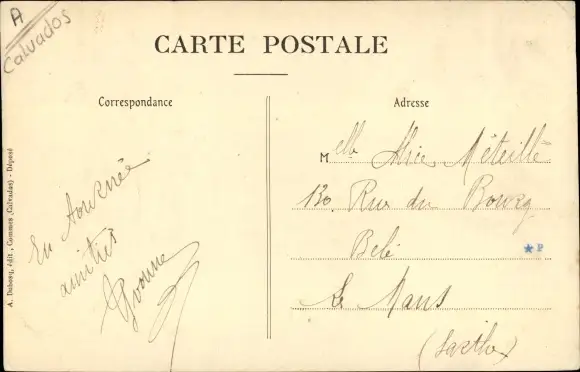 A
Calvados
CARTE POSTALE
Correspondance
Adresse
A. Dubosq, édit., Commes (Calvados) - Déposé
En tournée
amitiés
Yvonne
Melle Alice Méteillé
130 Rue du Bourg
Belé
Le Mans
(Sarthe)
*P